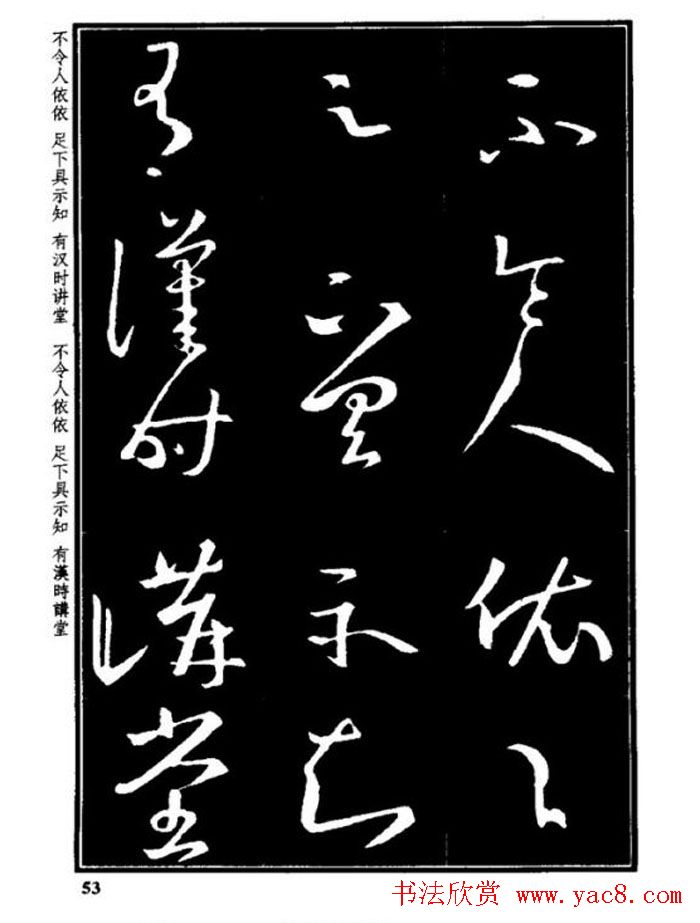 不令人依〻
足下具示知
有漢时講堂
不令人依依 足下具示知 有汉时讲堂 不令人依依 足下具示知 有漢時講堂
53
书法欣赏 www.yac8.com